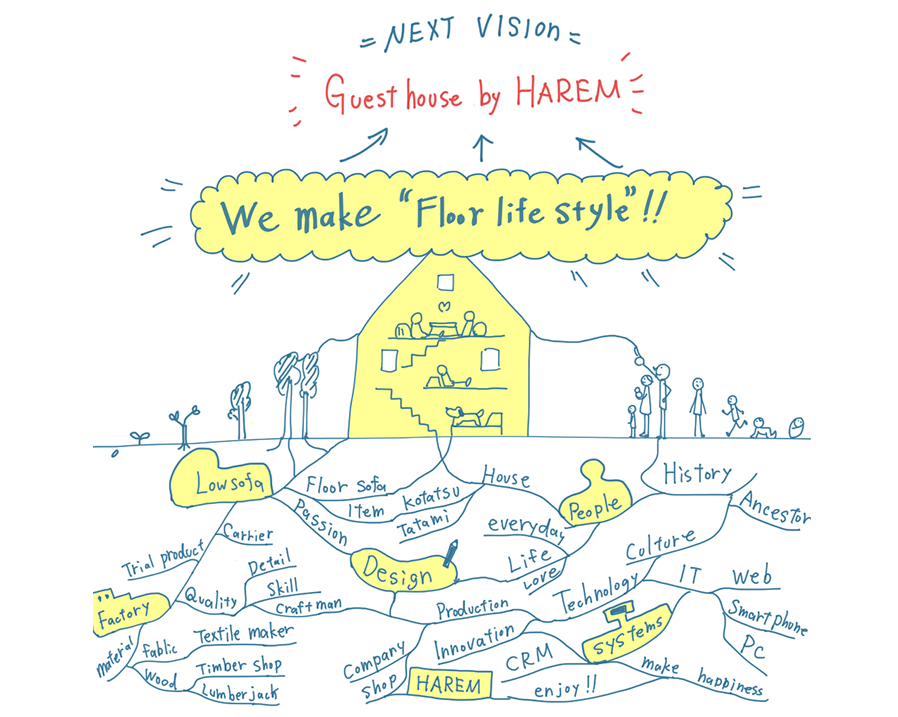 = NEXT VISION =
Guest house by HAREM
We make "Floor life style"!!
Lowsofa
Floor sofa
Item
kotatsu
Tatami
House
People
History
Ancestor
Passion
everyday
Culture
Carrier
Trial product
Detail
Skill
Quality
Craftman
Design
Life
Love
Technology
IT
Web
Smartphone
Pc
Factory
Production
Innovation
systems
material
fablic
Textile maker
Wood
Timber shop
Lumberjack
Company
shop
HAREM
CRM
enjoy!!
make happiness